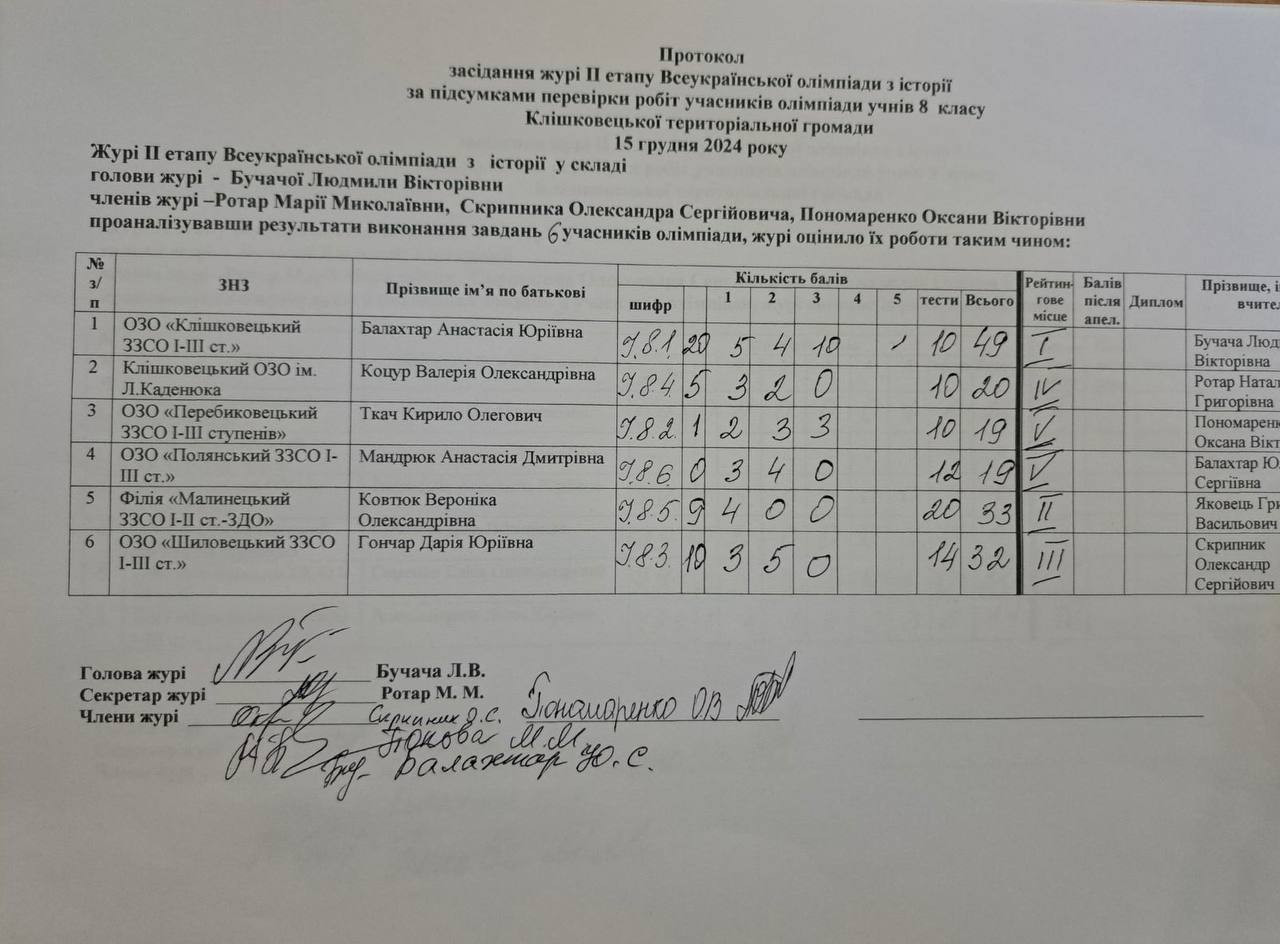 Протокол
засідання журі ІІ етапу Всеукраїнської олімпіади з історії
за підсумками перевірки робіт учасників олімпіади учнів 8 класу
Клішковецької територіальної громади
15 грудня 2024 року
Журі ІІ етапу Всеукраїнської олімпіади з історії у складі
голови журі - Бучачої Людмили Вікторівни
членів журі –Ротар Марії Миколаївни, Скрипника Олександра Сергійовича, Пономаренко Оксани Вікторівни
проаналізувавши результати виконання завдань 6 учасників олімпіади, журі оцінило їх роботи таким чином:
№ з/п ЗНЗ Прізвище ім’я по батькові Кількість балів Рейтин-гове місце Балів після апел. Диплом Прізвище, і
вчител
шифр 1 2 3 4 5 тести Всього
1 ОЗО «Клішковецький Балахтар Анастасія Юріївна І.8.1. 20 5 4 10 10 49 І Бучача Люд
ЗЗСО І-ІІІ ст.» Вікторівна
2 Клішковецький ОЗО ім. Коцур Валерія Олександрівна І.8.4. 5 3 2 0 10 20 IV Ротар Натал
Л.Каденюка Григорівна
3 ОЗО «Перебиковецький Ткач Кирило Олегович І.8.2. 1 2 3 3 10 19 V Пономаренк
ЗЗСО І-ІІІ ступенів» Оксана Вікт
4 ОЗО «Полянський ЗЗСО І- Мандрюк Анастасія Дмитрівна І.8.6. 0 3 4 0 12 19 V Балахтар Ю
ІІІ ст.» Сергіївна
5 Філія «Малинецький Ковтюк Вероніка І.8.5. 9 4 0 0 20 33 ІІ Яковець Гри
ЗЗСО І-ІІ ст.-ЗДО» Олександрівна Васильович
6 ОЗО «Шиловецький ЗЗСО Гончар Дарія Юріївна І.8.3. 10 3 5 0 14 32 ІІІ Скрипник
І-ІІІ ст.» Олександр
Сергійович
Голова журі Бучача Л.В.
Секретар журі Ротар М. М.
Члени журі Скрипник О.С. Пономаренко О.В
Попова М.М.
Балахтар Ю.С.